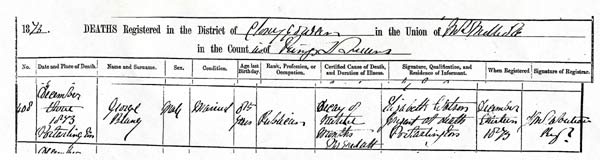 1873. DEATHS Registered in the District of Clonygowan in the Union of Mt Mellick
in the Counties of King's & Queens
No. Date and Place of Death. Name and Surname. Sex. Condition. Age last Birthday. Rank, Profession, or Occupation. Certified Cause of Death, and Duration of Illness. Signature, Qualification, and Residence of Informant. When Registered Signature of Registrar.
408
December
three
1873
Portarlington
George
Male
years
Publican
Decay of
nature
months
Elizabeth
present at death
Portarlington
December
1873